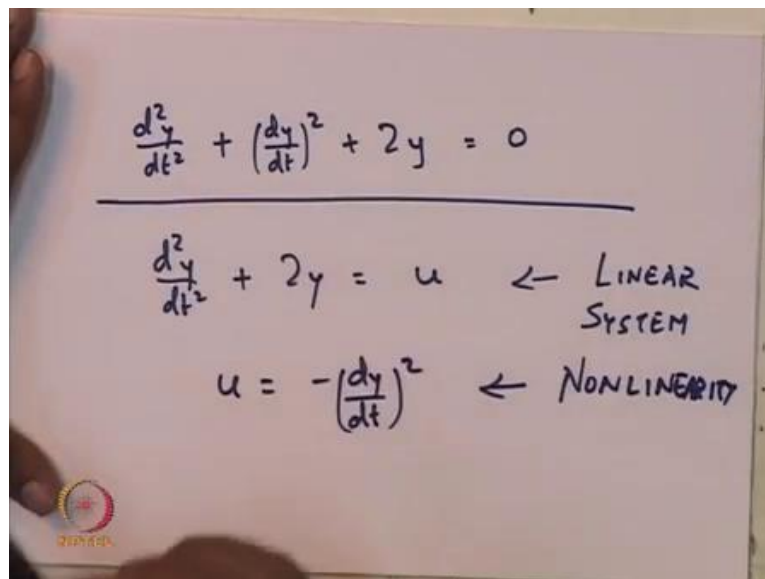 d²y/dt² + (dy/dt)² + 2y = 0
d²y/dt² + 2y = u ← LINEAR
SYSTEM
u = -(dy/dt)² ← NONLINEARITY
NPTEL